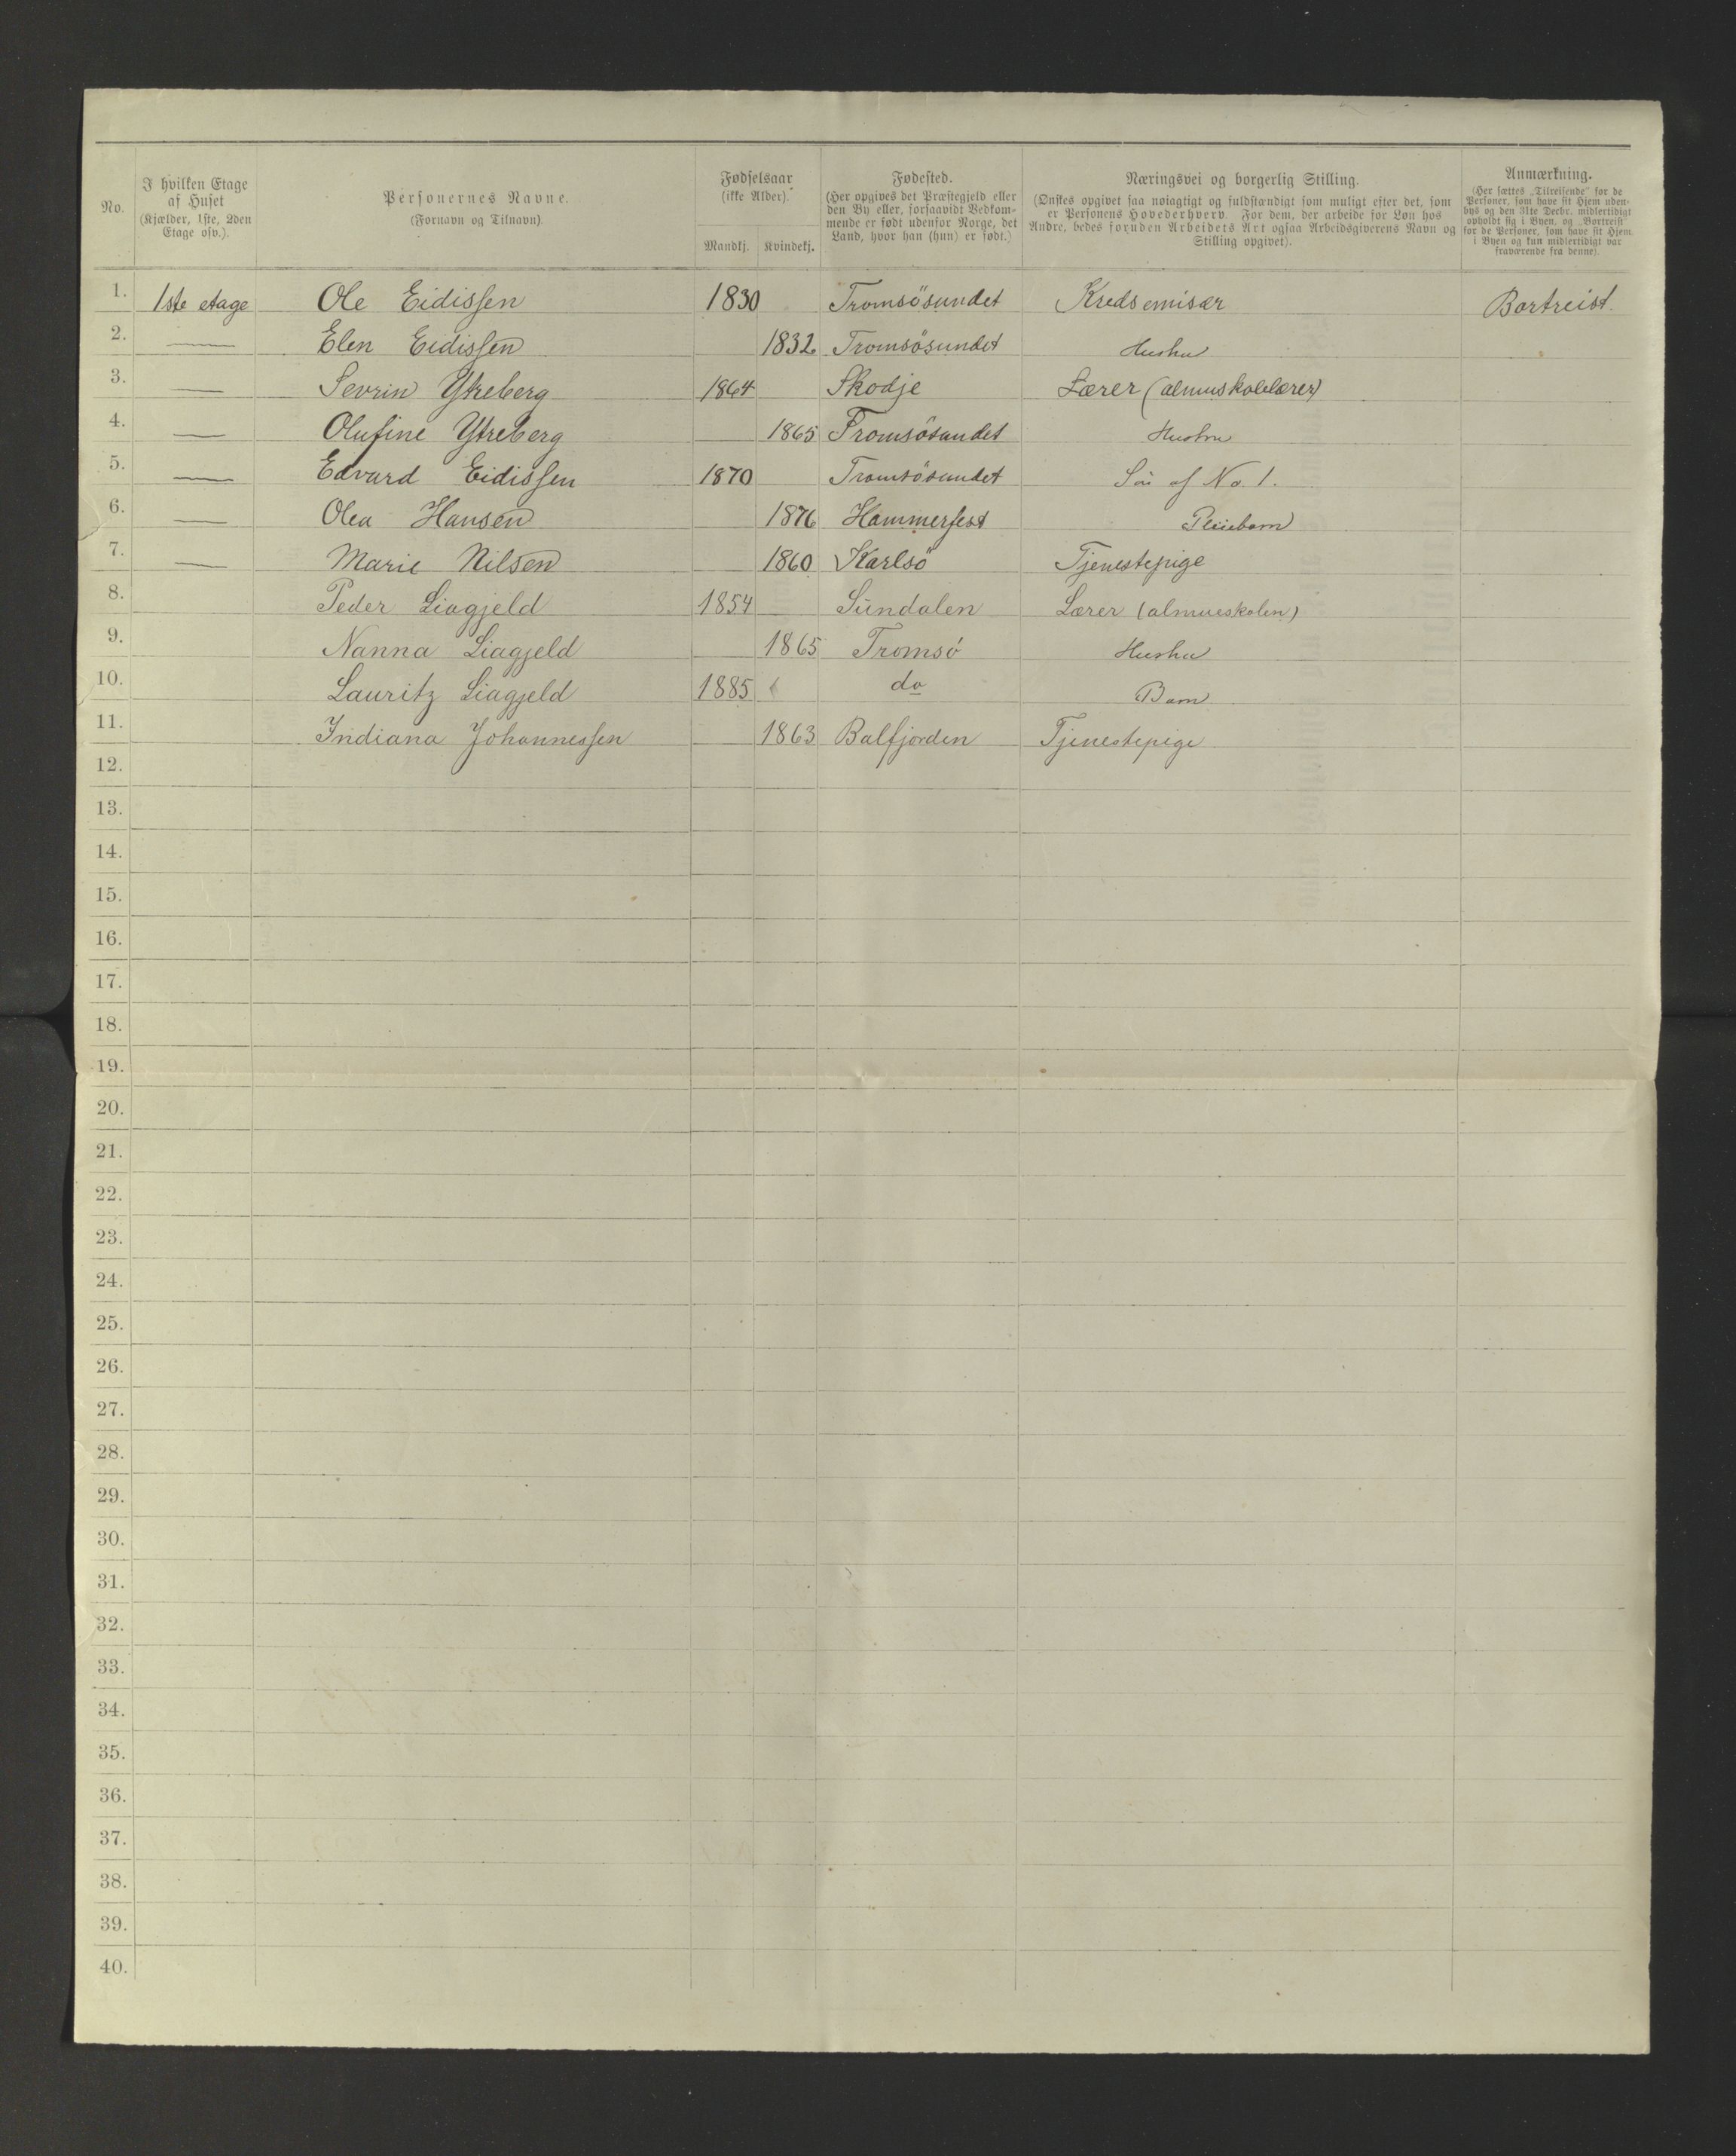 No.
I hvilken Etage af Huset (Kjælder, 1ste, 2den Etage osv.).
Personernes Navne. (Fornavn og Tilnavn).
Fødselsaar (ikke Alder).
Mandkj. Kvindekj.
Fødested. (Her opgives det Præstegjeld eller den By eller, forsaavidt Vedkommende er født udenfor Norge, det Land, hvor han (hun) er født.)
Næringsvei og borgerlig Stilling. (Ønskes opgivet saa nøiagtigt og fuldstændigt som muligt efter det, som er Personens Hovederhverv. For dem, der arbeide for Løn hos Andre, bedes foruden Arbeidets Art ogsaa Arbeidsgiverens Navn og Stilling opgivet).
Anmærkning. (Her sættes „Tilreisende" for de Personer, som have sit Hjem udenbys og den 31te Decbr. midlertidigt opholdt sig i Byen, og „Bortreist" for de Personer, som have sit Hjem i Byen og kun midlertidigt var fraværende fra denne).
1. 1ste etage Ole Eidissen 1830 Tromsösundet Kredsemisær Bortreist.
2. — Elen Eidissen 1832 Tromsösundet Hustru
3. — Sevrin Ytreberg 1864 Skodje Lærer (almuskolelærer)
4. — Olufine Ytreberg 1865 Tromsösundet Hustru
5. — Edvard Eidissen 1870 Tromsösundet Sön af No. 1.
6. — Olea Hansen 1876 Hammerfest Pleiebarn
7. — Marie Nilsen 1860 Karlsö Tjenestepige
8. Peder Liagjeld 1854 Sündalen Lærer (almueskolen)
9. Nanna Liagjeld 1865 Tromsö Hustru
10. Lauritz Liagjeld 1885 do Barn
11. Indiana Johannessen 1863 Balsfjorden Tjenestepige
12.
13.
14.
15.
16.
17.
18.
19.
20.
21.
22.
23.
24.
25.
26.
27.
28.
29.
30.
31.
32.
33.
34.
35.
36.
37.
38.
39.
40.